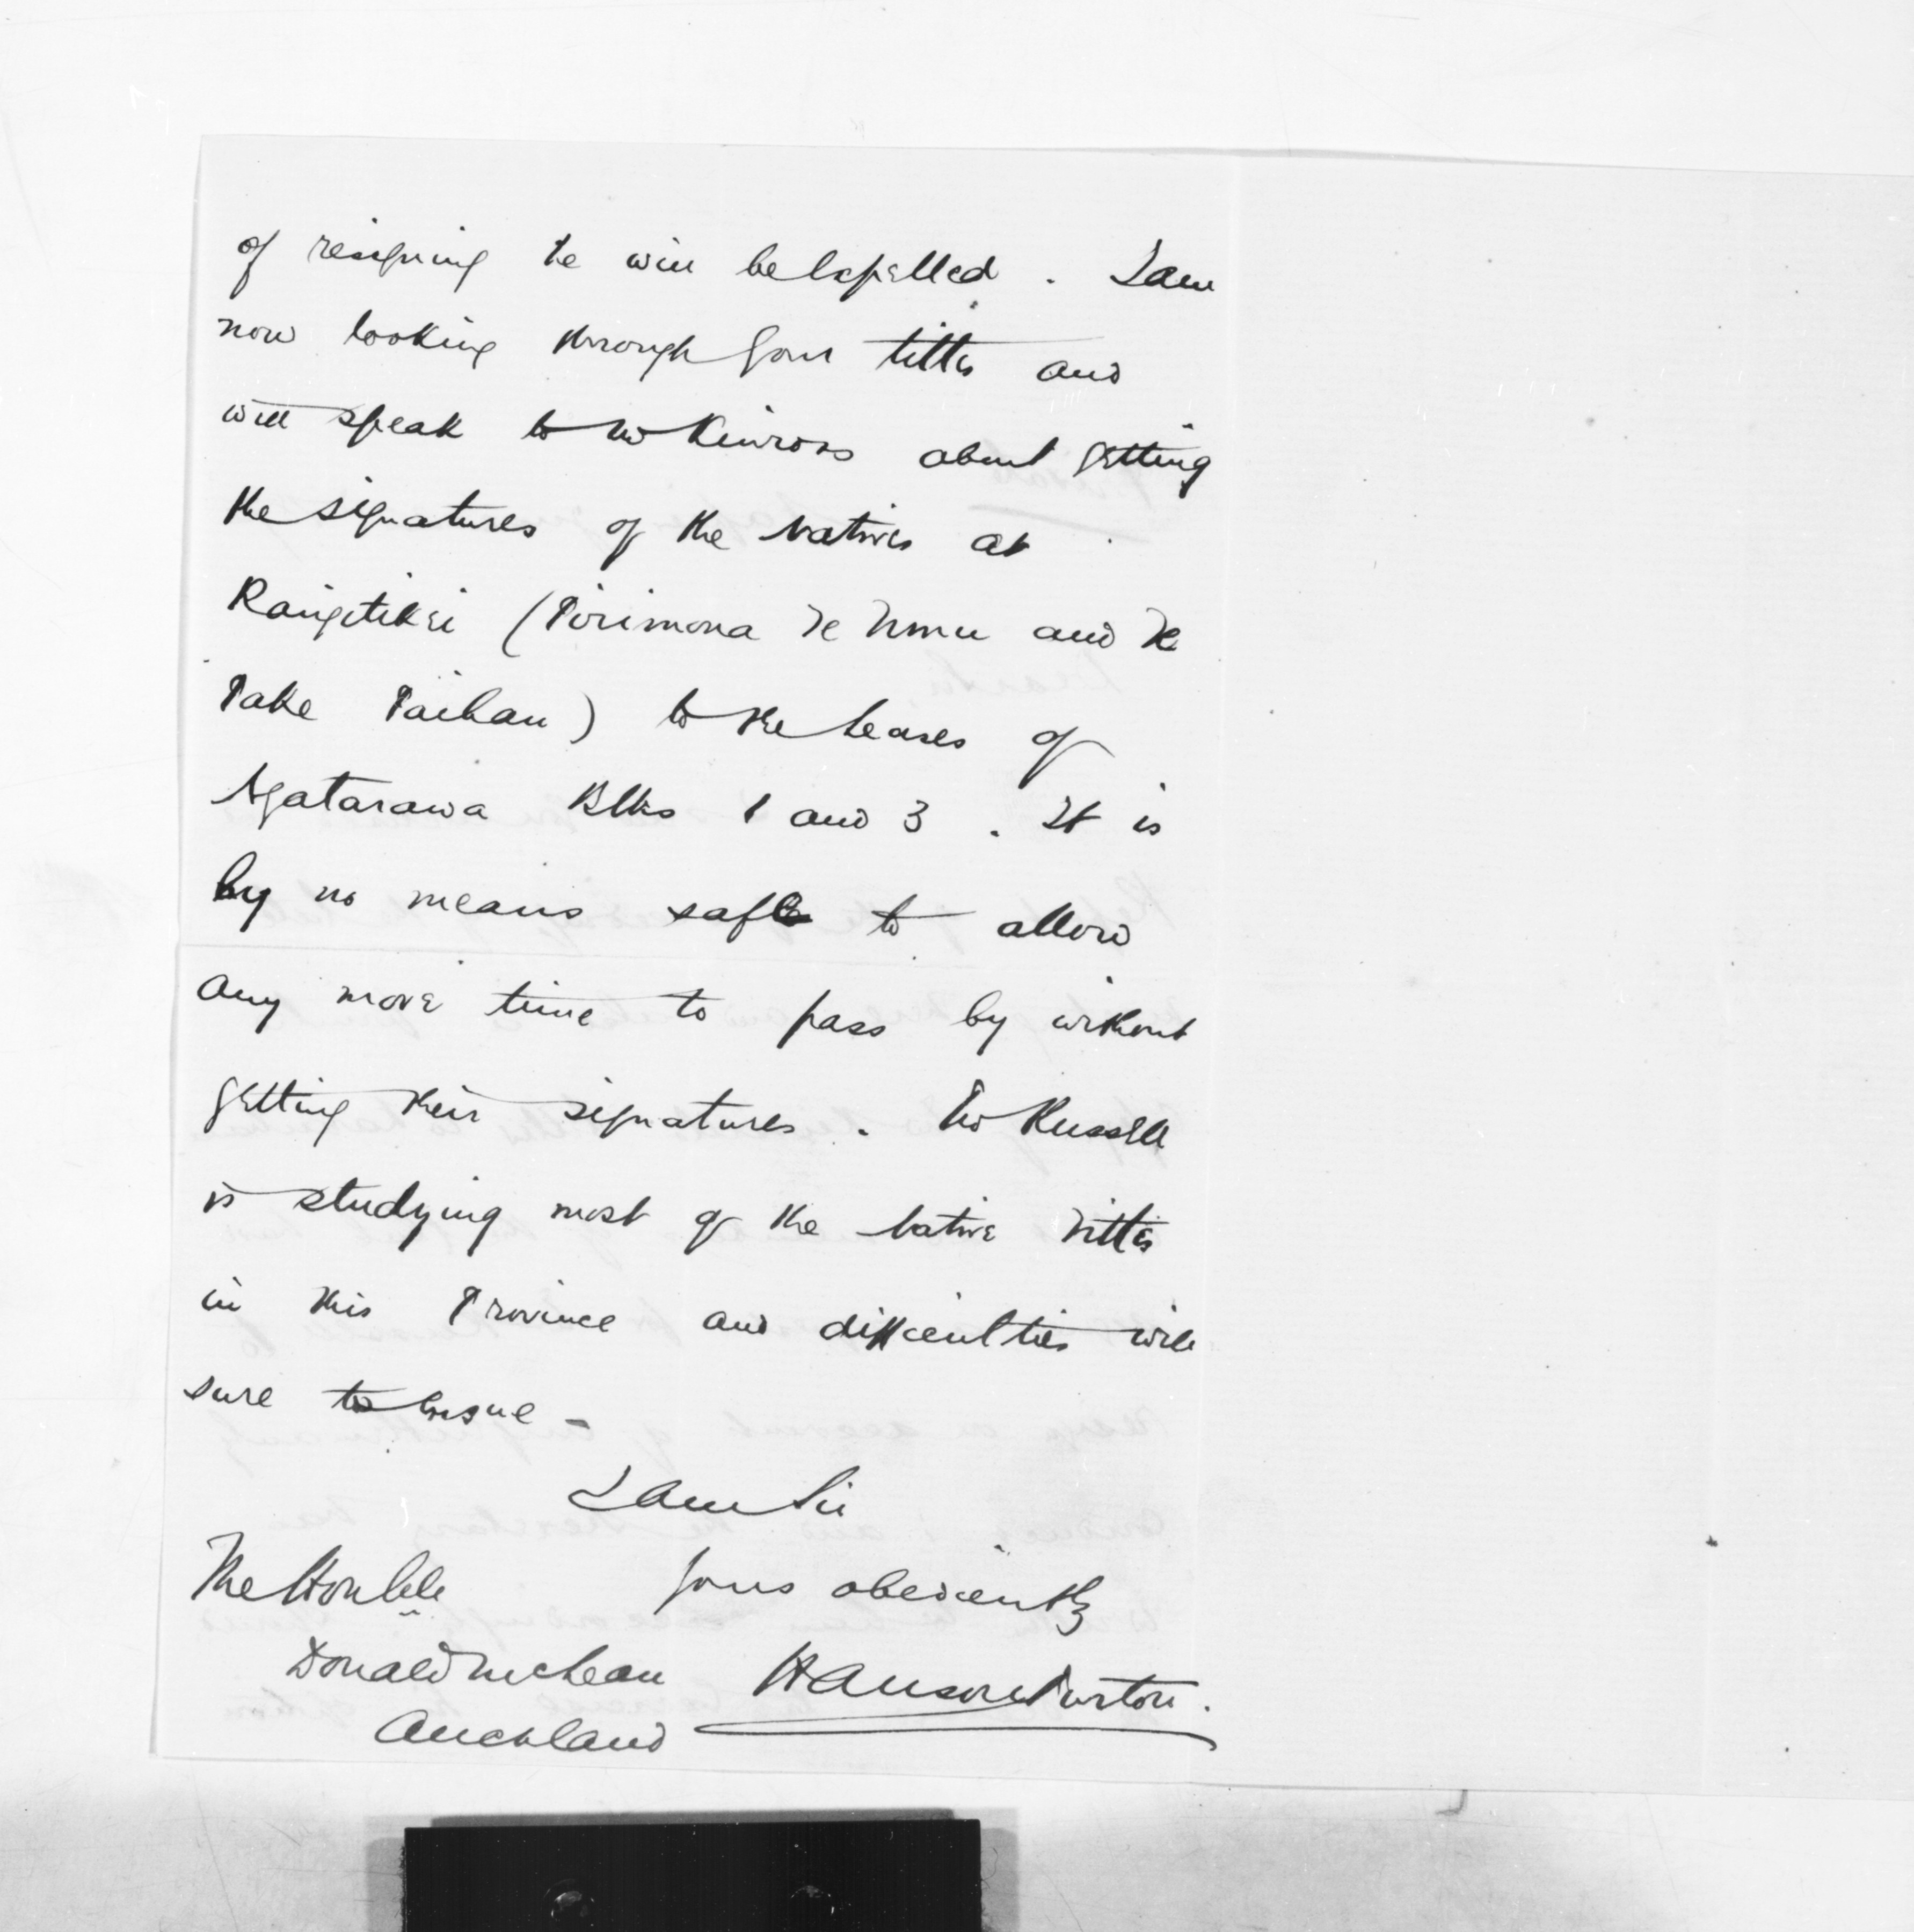 of resigning he will be expelled. I am
now looking through your titles and
will speak to Mr Kinross about getting
the signatures of the Natives at
Rangitikei (Pirimona Te Urnu and Te
Take Taihau) to the leases of
Ngatarawa Blks 1 and 3. It is
by no means safe to allow
any more time to pass by without
getting their signatures. Mr Russell
is studying most of the Native Titles
in this Province and difficulties will
sure to ensue -
I am Sir
The Honble yours obediently
Donald McLean Hanson Turton.
Auckland